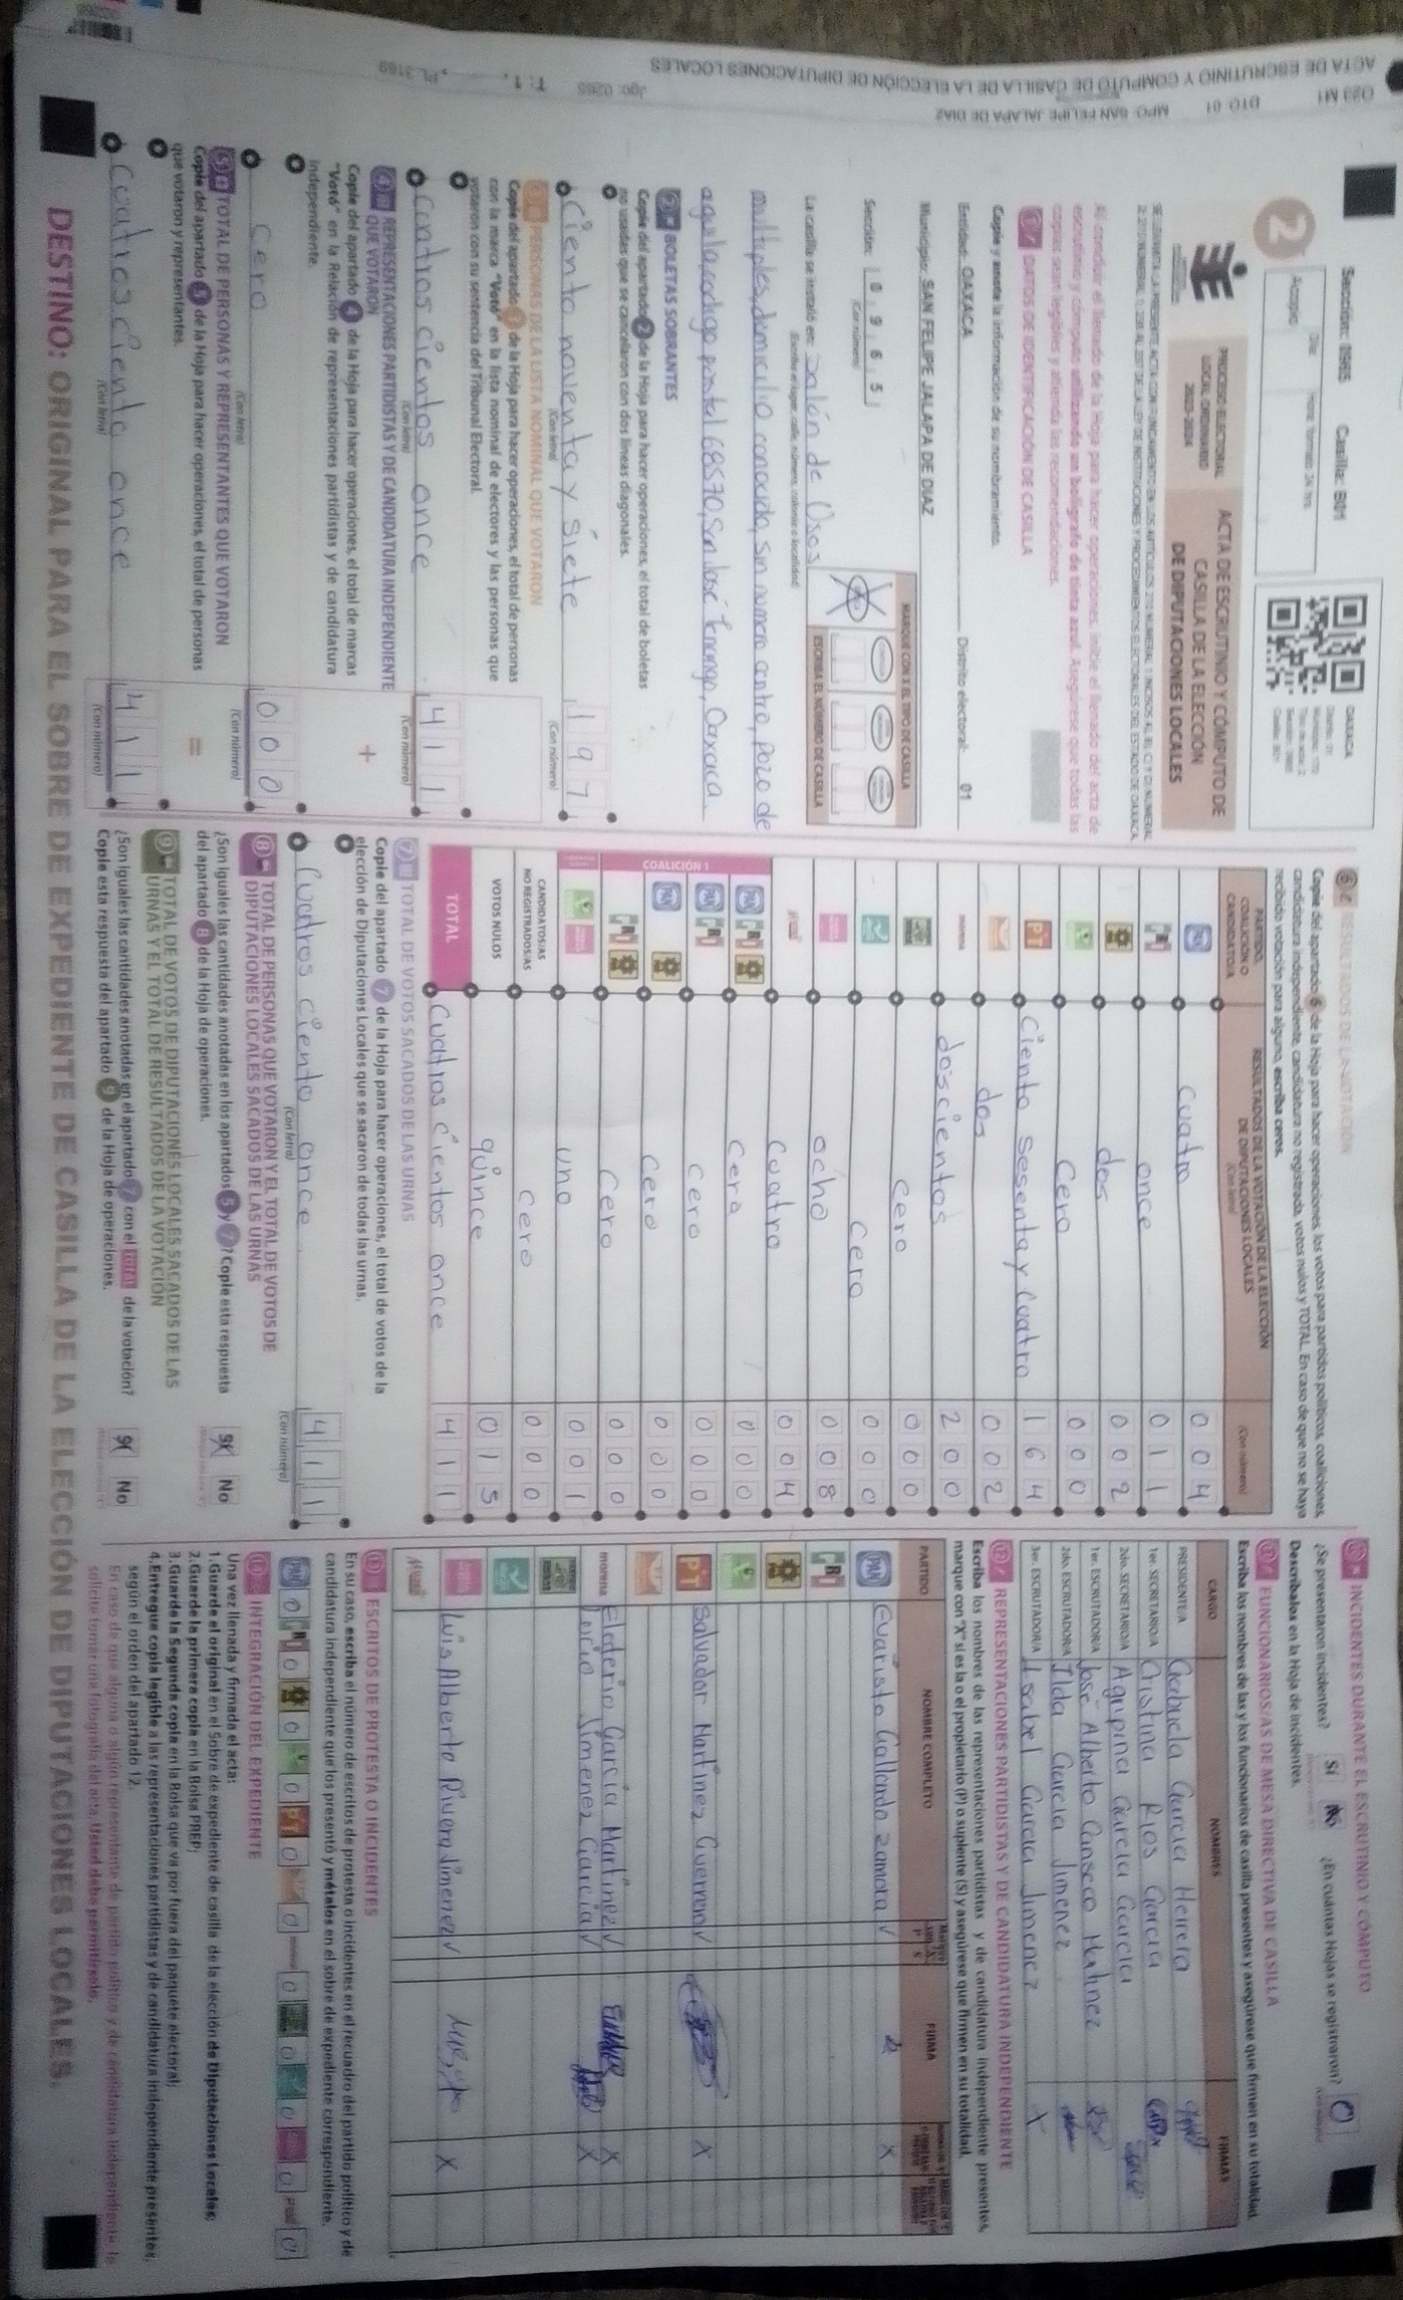 Sección: 0965 Casilla: B01
OAXACA
2
Acopio
PROCESO ELECTORAL
LOCAL ORDINARIO
2023-2024
ACTA DE ESCRUTINIO Y CÓMPUTO DE
CASILLA DE LA ELECCIÓN
DE DIPUTACIONES LOCALES
Al concluir el llenado de la Hoja para hacer operaciones, inicie el llenado del acta de
escrutinio y cómputo utilizando un bolígrafo de tinta azul. Asegúrese que todas las
copias sean legibles y atienda las recomendaciones.
DATOS DE IDENTIFICACIÓN DE CASILLA
Copie y anote la información de su nombramiento.
Entidad: OAXACA Distrito electoral: 01
Municipio: SAN FELIPE JALAPA DE DÍAZ
Sección: 0 9 6 5
(Con número)
MARQUE CON X EL TIPO DE CASILLA
ESCRIBA EL NÚMERO DE CASILLA
La casilla se instaló en: Salón de Usos
multiples, domicilio conocido, sin numero centro, Pozo de
aguila, codigo postal 68570, San Jose Tenango, Oaxaca
2 BOLETAS SOBRANTES
Copie del apartado 2 de la Hoja para hacer operaciones, el total de boletas
no usadas que se cancelaron con dos líneas diagonales.
Ciento noventa y siete 1 9 7
(Con letra) (Con número)
3 PERSONAS DE LA LISTA NOMINAL QUE VOTARON
Copie del apartado 3 de la Hoja para hacer operaciones, el total de personas
con la marca "Votó" en la lista nominal de electores y las personas que
votaron con su sentencia del Tribunal Electoral.
Cuatros cientos once 4 1 1
(Con letra) (Con número)
4 REPRESENTACIONES PARTIDISTAS Y DE CANDIDATURA INDEPENDIENTE
QUE VOTARON +
Copie del apartado 4 de la Hoja para hacer operaciones, el total de marcas
"Votó" en la Relación de representaciones partidistas y de candidatura
independiente.
Cero 0 0 0
(Con letra) (Con número)
5 TOTAL DE PERSONAS Y REPRESENTANTES QUE VOTARON =
Copie del apartado 5 de la Hoja para hacer operaciones, el total de personas
que votaron y representantes.
Cuatros ciento once 4 1 1
(Con letra) (Con número)
6 RESULTADOS DE LA VOTACIÓN
Copie del apartado 6 de la Hoja para hacer operaciones, los votos para partidos políticos, coaliciones,
candidatura independiente, candidatura no registrada, votos nulos y TOTAL. En caso de que no se haya
recibido votación para alguno, escriba ceros.
PARTIDO,
COALICIÓN O
CANDIDATO/A
RESULTADOS DE LA VOTACIÓN DE LA ELECCIÓN
DE DIPUTACIONES LOCALES
(Con letra) (Con número)
PAN Cuatro 0 0 4
PRI once 0 1 1
dos 0 0 2
Cero 0 0 0
PT Ciento sesenta y Cuatro 1 6 4
dos 0 0 2
morena doscientos 2 0 0
Cero 0 0 0
Cero 0 0 0
ocho 0 0 8
Cuatro 0 0 4
COALICIÓN 1
PAN PRI Cero 0 0 0
PAN PRI Cero 0 0 0
PAN Cero 0 0 0
PRI Cero 0 0 0
uno 0 0 1
CANDIDATOS/AS
NO REGISTRADOS/AS Cero 0 0 0
VOTOS NULOS quince 0 1 5
TOTAL Cuatros cientos once 4 1 1
7 TOTAL DE VOTOS SACADOS DE LAS URNAS
Copie del apartado 7 de la Hoja para hacer operaciones, el total de votos de la
elección de Diputaciones Locales que se sacaron de todas las urnas.
Cuatros ciento once 4 1 1
(Con letra) (Con número)
8 TOTAL DE PERSONAS QUE VOTARON Y EL TOTAL DE VOTOS DE
DIPUTACIONES LOCALES SACADOS DE LAS URNAS
¿Son iguales las cantidades anotadas en los apartados 5 y 7? Copie esta respuesta
del apartado 8 de la Hoja de operaciones. Sí No
9 TOTAL DE VOTOS DE DIPUTACIONES LOCALES SACADOS DE LAS
URNAS Y EL TOTAL DE RESULTADOS DE LA VOTACIÓN
¿Son iguales las cantidades anotadas en el apartado 7 con el TOTAL de la votación?
Copie esta respuesta del apartado 9 de la Hoja de operaciones. Sí No
INCIDENTES DURANTE EL ESCRUTINIO Y CÓMPUTO
¿Se presentaron incidentes? Sí No ¿En cuántas Hojas se registraron? 0
Descríbalos en la Hoja de incidentes.
FUNCIONARIOS/AS DE MESA DIRECTIVA DE CASILLA
Escriba los nombres de las y los funcionarios de casilla presentes y asegúrese que firmen en su totalidad.
CARGO NOMBRES FIRMAS
PRESIDENTE/A Gabriela Garcia Herrera
1er. SECRETARIO/A Cristina Rios Garcia
2do. SECRETARIO/A Agripina Garcia Garcia
1er. ESCRUTADOR/A Jose Alberto Canseco Martinez
2do. ESCRUTADOR/A Ilda Garcia Jimenez
3er. ESCRUTADOR/A Isabel Garcia Jimenez X
12 REPRESENTACIONES PARTIDISTAS Y DE CANDIDATURA INDEPENDIENTE
Escriba los nombres de las representaciones partidistas y de candidatura independiente presentes,
marque con "X" si es la o el propietario (P) o suplente (S) y asegúrese que firmen en su totalidad.
PARTIDO NOMBRE COMPLETO P S FIRMA
PAN Evaristo Gallardo Zamora X
PRI
PT Salvador Martinez Guerrero X
morena Elederio Garcia Martinez X
Jimenez Garcia X
Luis Alberto Rivera Jimenez X
ESCRITOS DE PROTESTA O INCIDENTES
En su caso, escriba el número de escritos de protesta o incidentes en el recuadro del partido político y de
candidatura independiente que los presentó y métalos en el sobre de expediente correspondiente.
PAN 0 PRI 0 0 0 PT 0 0 morena 0 0 0 0 0
INTEGRACIÓN DEL EXPEDIENTE
Una vez llenada y firmada el acta:
1.Guarde el original en el Sobre de expediente de casilla de la elección de Diputaciones Locales;
2.Guarde la primera copia en la Bolsa PREP;
3.Guarde la Segunda copia en la Bolsa que va por fuera del paquete electoral;
4.Entregue copia legible a las representaciones partidistas y de candidatura independiente presentes,
según el orden del apartado 12.
En caso de que alguna o algún representante de partido político y de candidatura independiente le
solicite tomar una fotografía del acta, Usted debe permitírselo.
DESTINO: ORIGINAL PARA EL SOBRE DE EXPEDIENTE DE CASILLA DE LA ELECCIÓN DE DIPUTACIONES LOCALES.
ACTA DE ESCRUTINIO Y CÓMPUTO DE CASILLA DE LA ELECCIÓN DE DIPUTACIONES LOCALES
DTO: 01 MPO: SAN FELIPE JALAPA DE DIAZ
Jgo: 0265